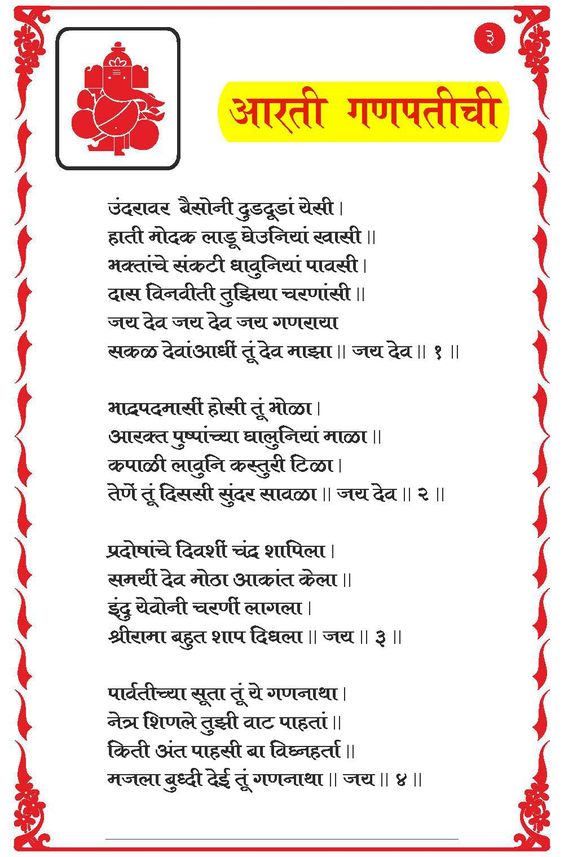 ३
आरती गणपतीची
उंदरावर बैसोनी दुडदूडां येसी ।
हाती मोदक लाडू घेउनियां खासी ॥
भक्तांचे संकटी धावुनियां पावसी ।
दास विनवीती तुझिया चरणांसी ॥
जय देव जय देव जय गणराया
सकळ देवांआधीं तूं देव माझा ॥ जय देव ॥ १ ॥
भाद्रपदमासीं होसी तूं भोळा ।
आरक्त पुष्पांच्या घालुनियां माळा ॥
कपाळी लावुनि कस्तुरी टिळा ।
तेणें तूं दिससी सुंदर सावळा ॥ जय देव ॥ २ ॥
प्रदोषांचे दिवशीं चंद्र शापिला ।
समयीं देव मोठा आकांत केला ॥
इंदु येवोनी चरणीं लागला ।
श्रीरामा बहुत शाप दिधला ॥ जय ॥ ३ ॥
पार्वतीच्या सूता तूं ये गणनाथा ।
नेत्र शिणले तुझी वाट पाहतां ॥
किती अंत पाहसी बा विघ्नहर्ता ॥
मजला बुध्दी देई तूं गणनाथा ॥ जय ॥ ४ ॥